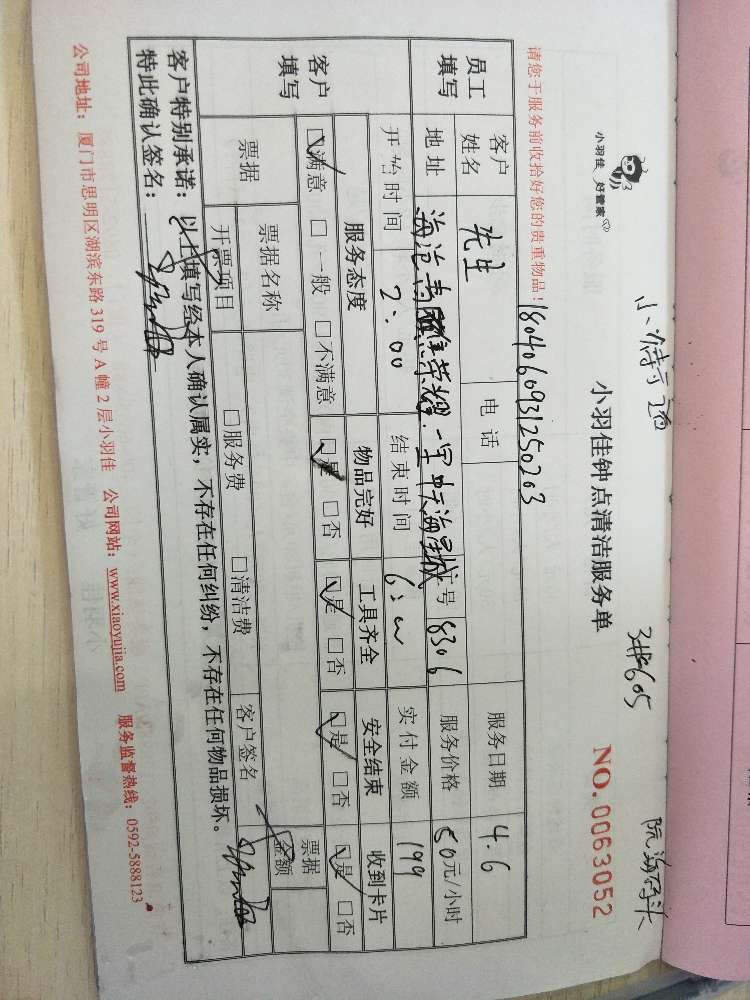 小羽佳 好管家
小羽佳钟点清洁服务单
3#605
NO. 0063052
请您于服务前收拾好您的贵重物品!
1804060931250203
员工填写
客户姓名 先生 电话 服务日期 4.6
地址 海沧 一里 海景城 户号 8306 服务价格 50元/小时
开始时间 2:00 结束时间 实付金额 199
客户填写
服务态度 物品完好 工具齐全 安全结束 收到卡片
☑满意 □一般 □不满意 ☑是 □否 ☑是 □否 ☑是 □否 ☑是 □否
票据 票据名称 票据金额
开票项目 □服务费 □清洁费 客户签名
客户特别承诺:以上填写经本人确认属实,不存在任何纠纷,不存在任何物品损坏。
特此确认签名:
公司地址:厦门市思明区湖滨东路319号A幢2层小羽佳 公司网站:www.xiaoyujia.com 服务监督热线:0592-5888123